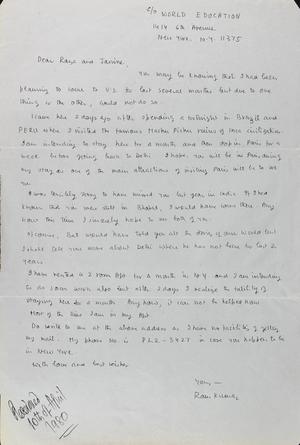 c/o WORLD EDUCATION
1414 6th Avenue
New York. N.Y. 11375
Dear Raza and Janine,
You may be knowing that I had been
planning to come to U.S. for last several months but due to one
thing or the other, could not do so.
I came here 2 days ago after spending a fortnight in Brazil and
PERU where I visited the famous Machu Pichu ruins of Inca civilization.
I am intending to stay here for a month and then stop in Paris for a
week before going back to Delhi. I hope you will be in Paris during
my stay as one of the main attractions of visiting Paris will be to see
you.
I was terribly sorry to have missed you last year in India. If I had
known that you were still in Bhopal, I would have come there. Any
how this time I sincerely hope to see both of you.
Of course, Bal would have told you all the story of our world but
I shall tell you more about Delhi where he has not been for last 2
years.
I have rented a 2 room apt for a month in N.Y. and I am intending
to do some work also but after 2 days I realize the futility of
staying here for a month. Any how, it can not be helped now.
Most of the time I am in my Apt.
Do write to me at the above address as I have no facilities of getting
my mail. My phone No. is PL2-3427 in case you happen to be
in New York.
With love and best wishes
Yours —
Ram Kumar
Received
10th of April
1980